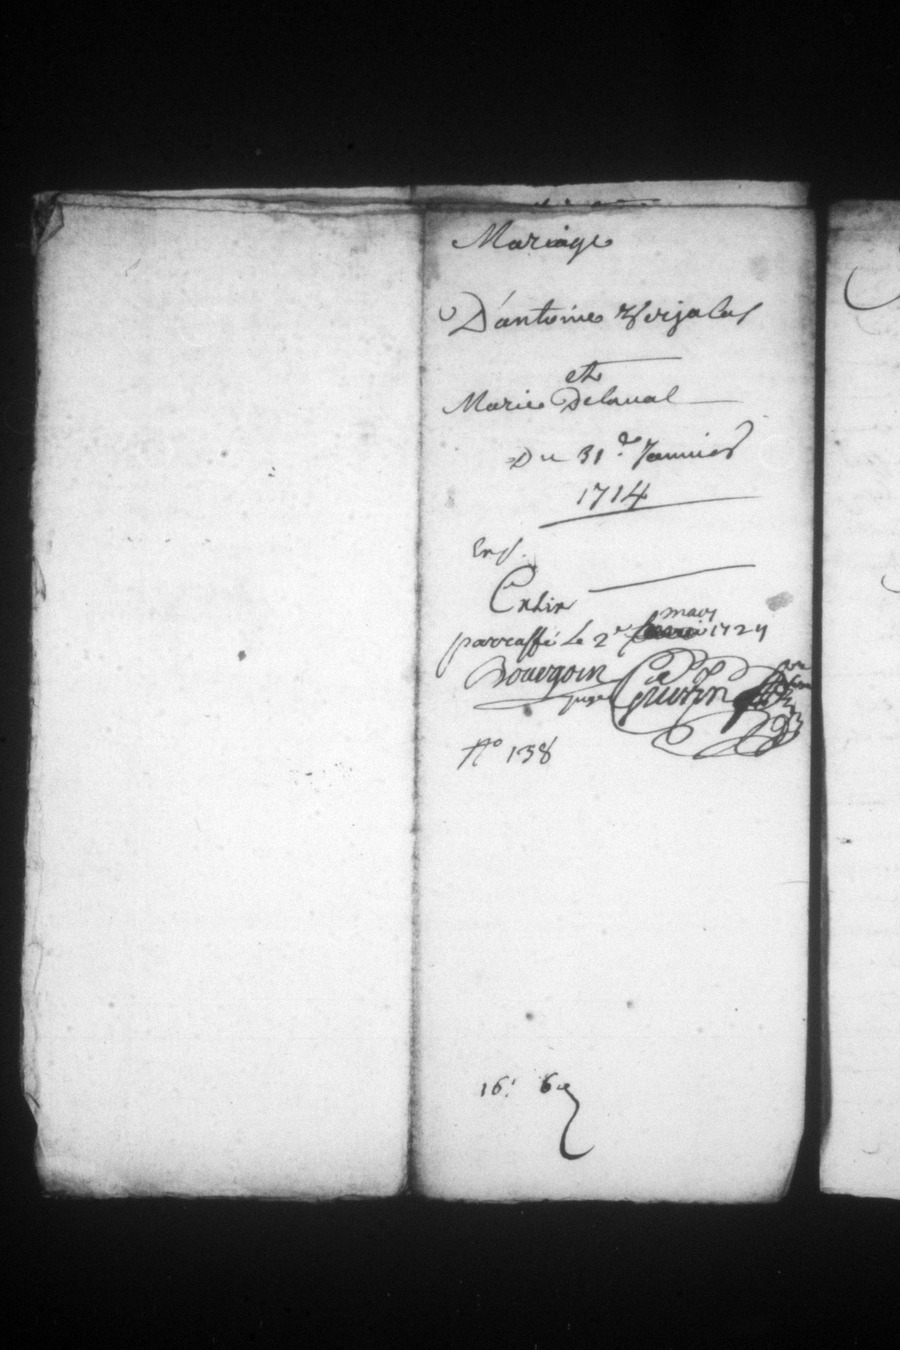 Mariage
D'antoine Verjalas
et
Marie Delaual
Du 31.e Januier
1714
parraffé Le 2e mars 1724
Bourgoin
juge Guérin
No 138
16 6